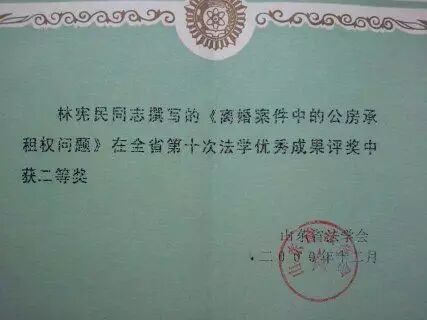 林宪民同志撰写的《离婚案件中的公房承
租权问题》在全省第十次法学优秀成果评奖中
获二等奖
山东省法学会
二〇〇〇年十二月